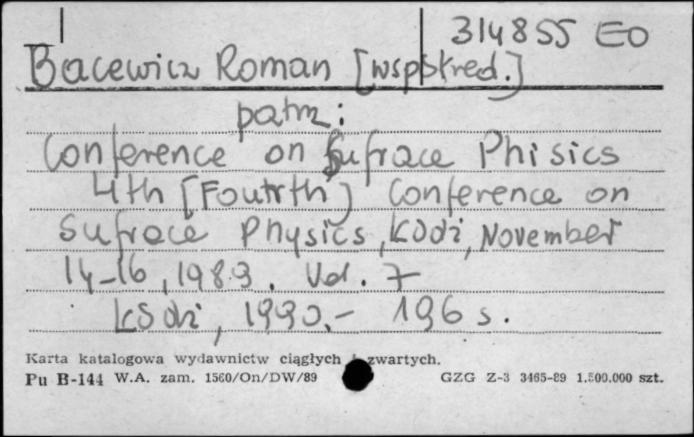 314855 EO
Bacewicz Roman [współred.]
patrz:
Conference on Sufrace Phisics
4th [Foutrth] Conference on
Sufrace Physics, Łódź, November
14-16, 1989. Vol. 7
Łódź, 1990.- 196 s.
Karta katalogowa wydawnictw ciągłych i zwartych.
Pu B-144 W.A. zam. 1560/On/DW/89 GZG Z-3 3465-89 1.500.000 szt.